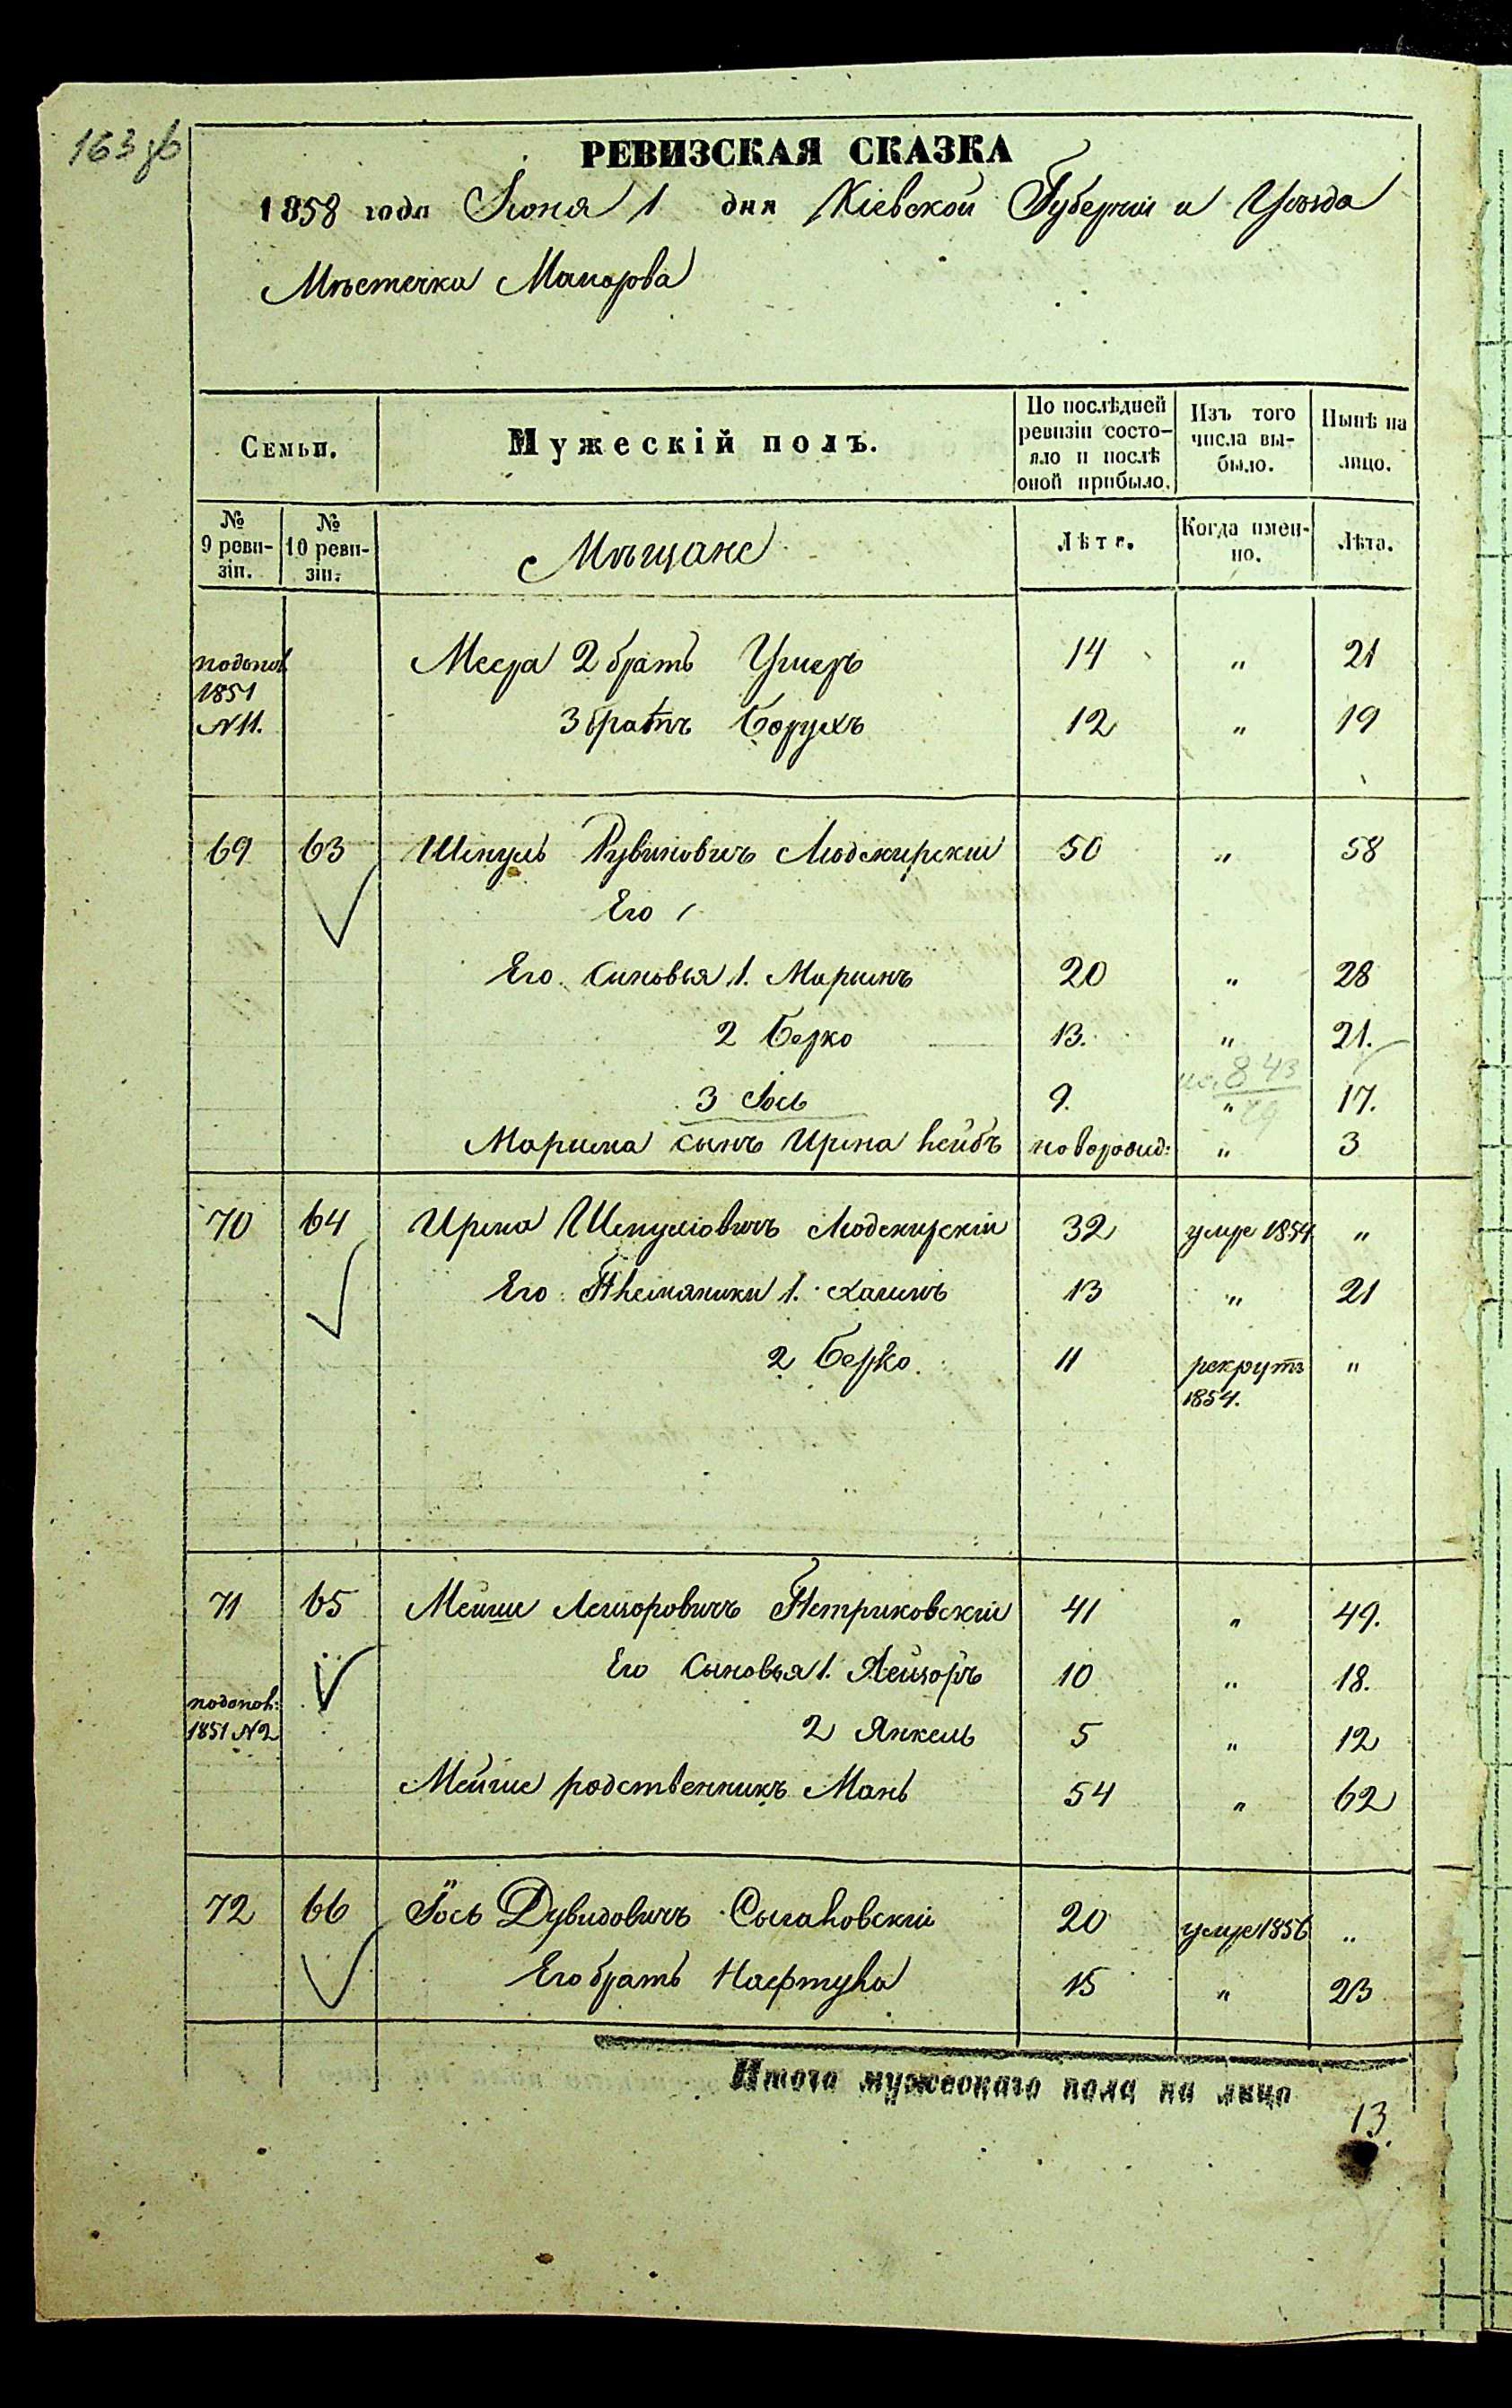 163 об
РЕВИЗСКАЯ СКАЗКА
1858 года Іюня 1 дня Кіевской Губерніи и Уѣзда
Мѣстечка Макарова
Семьи. Мужескій полъ. По послѣдней ревизіи состояло и послѣ оной прибыло. Изъ того числа выбыло. Нынѣ на лицо.
№ 9 ревизіи. № 10 ревизіи. Мѣщане Лѣта. Когда именно. Лѣта.
1851 № 11.
2 братъ 14 " 21
3 братъ Борухъ 12 " 19
69 63 Рувиновичъ 50 " 58
Его
Его Синовья 1. 20 " 28
2 Берко 13. " 21.
3 Іось 9. " 17.
843
сынъ Лейбъ новорожд: " 3
70 64 32 умре 1854 "
Его Племяники 1. Хаимъ 13 " 21
2 Берко. 11 рекрутъ 1854. "
71 65 Мейше Лейзоровичъ Петриковскій 41 " 49.
Его Сыновья 1. Лейзоръ 10 " 18.
1851 № 2 2 Янкель 5 " 12
Мейше родственникъ 54 " 62
72 66 Іось Дувидовичъ 20 умре 1856 "
Его братъ Нафтула 15 " 23
Итого мужескаго пола на лицо
13.